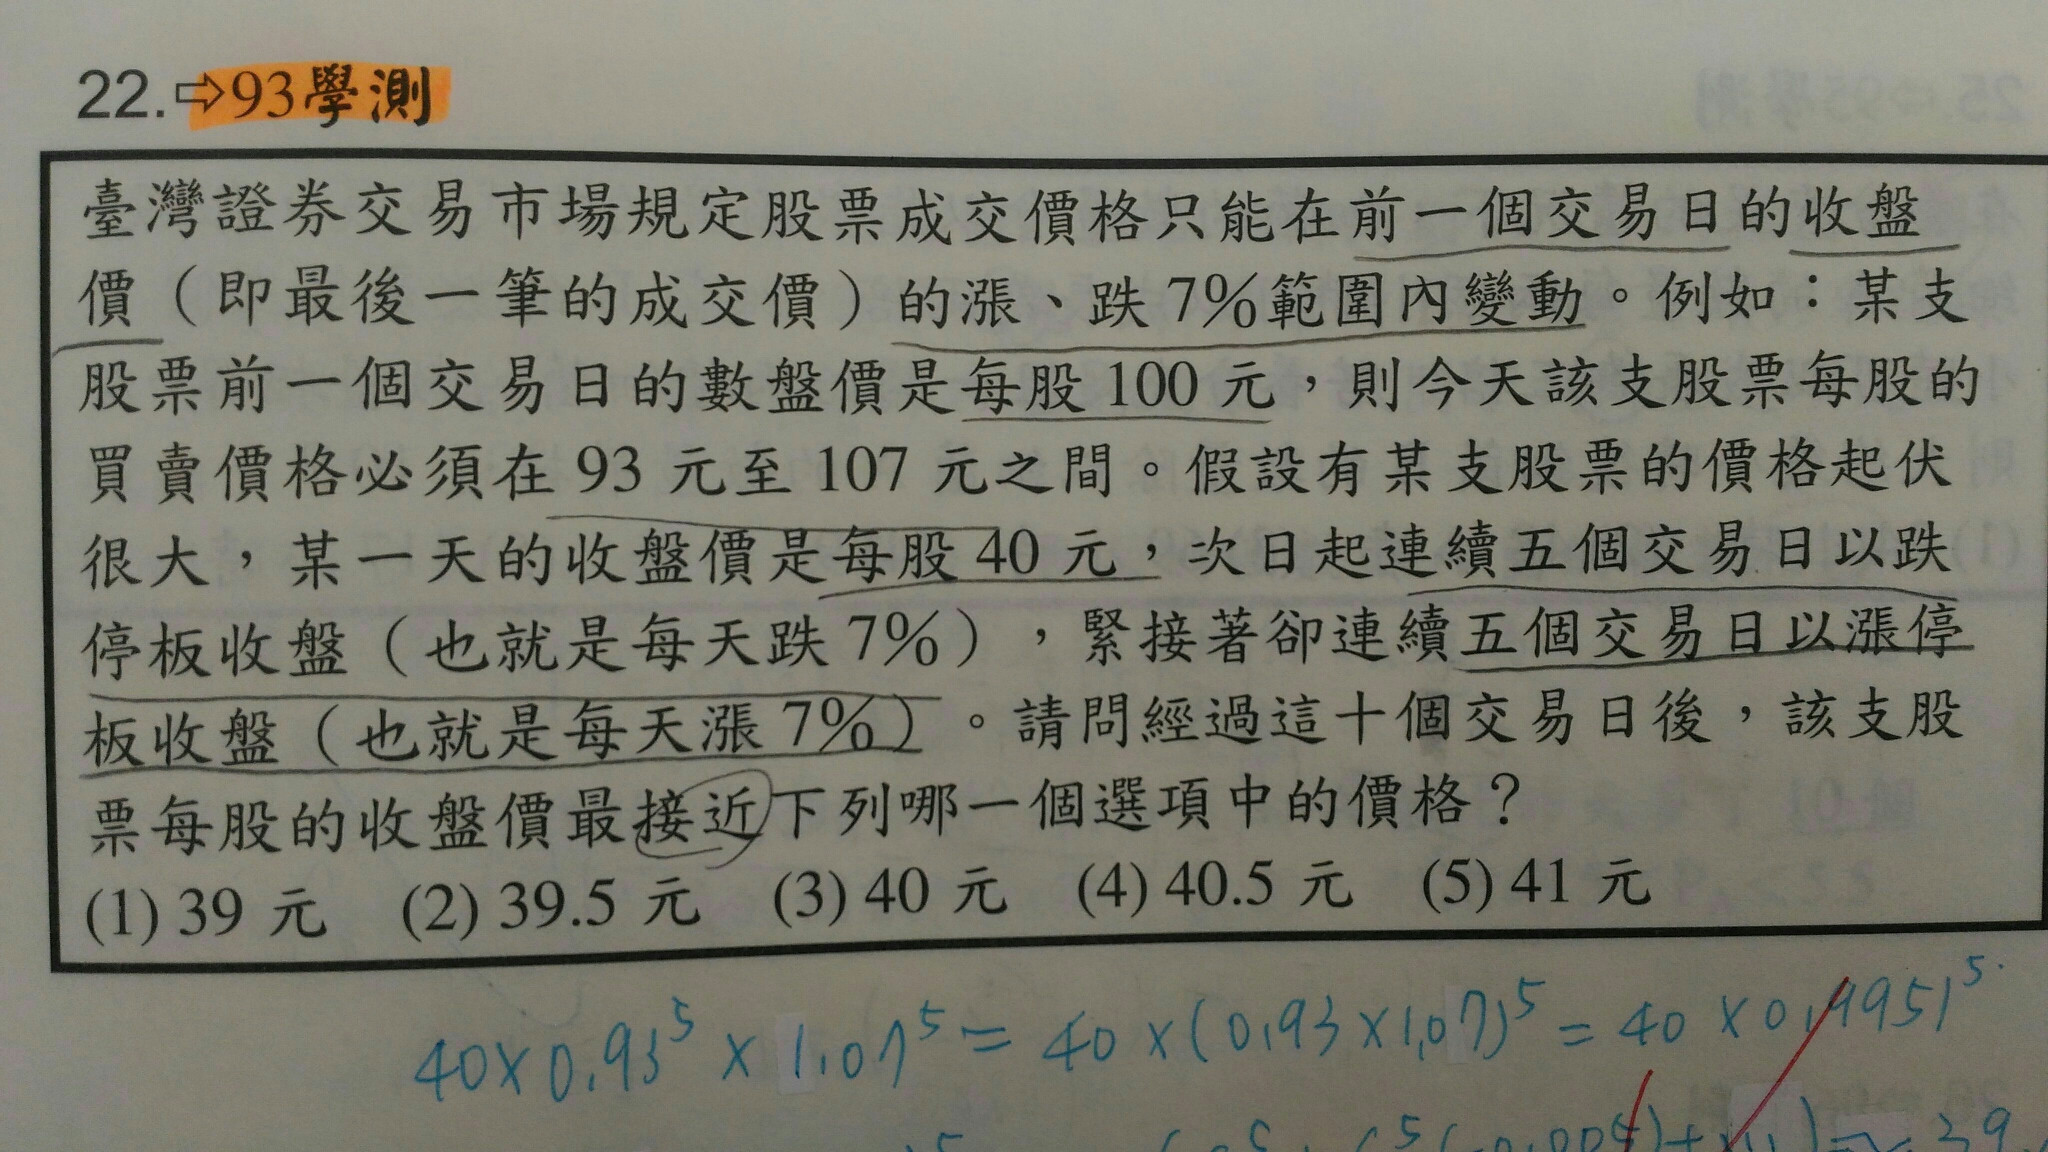 22.⇨93學測
臺灣證券交易市場規定股票成交價格只能在前一個交易日的收盤
價（即最後一筆的成交價）的漲、跌 7%範圍內變動。例如：某支
股票前一個交易日的數盤價是每股 100 元，則今天該支股票每股的
買賣價格必須在 93 元至 107 元之間。假設有某支股票的價格起伏
很大，某一天的收盤價是每股 40 元，次日起連續五個交易日以跌
停板收盤（也就是每天跌 7%），緊接著卻連續五個交易日以漲停
板收盤（也就是每天漲 7%）。請問經過這十個交易日後，該支股
票每股的收盤價最接近下列哪一個選項中的價格？
(1) 39 元 (2) 39.5 元 (3) 40 元 (4) 40.5 元 (5) 41 元
40×0.93⁵ × 1.07⁵ = 40 ×(0.93×1.07)⁵ = 40 ×0.9951⁵